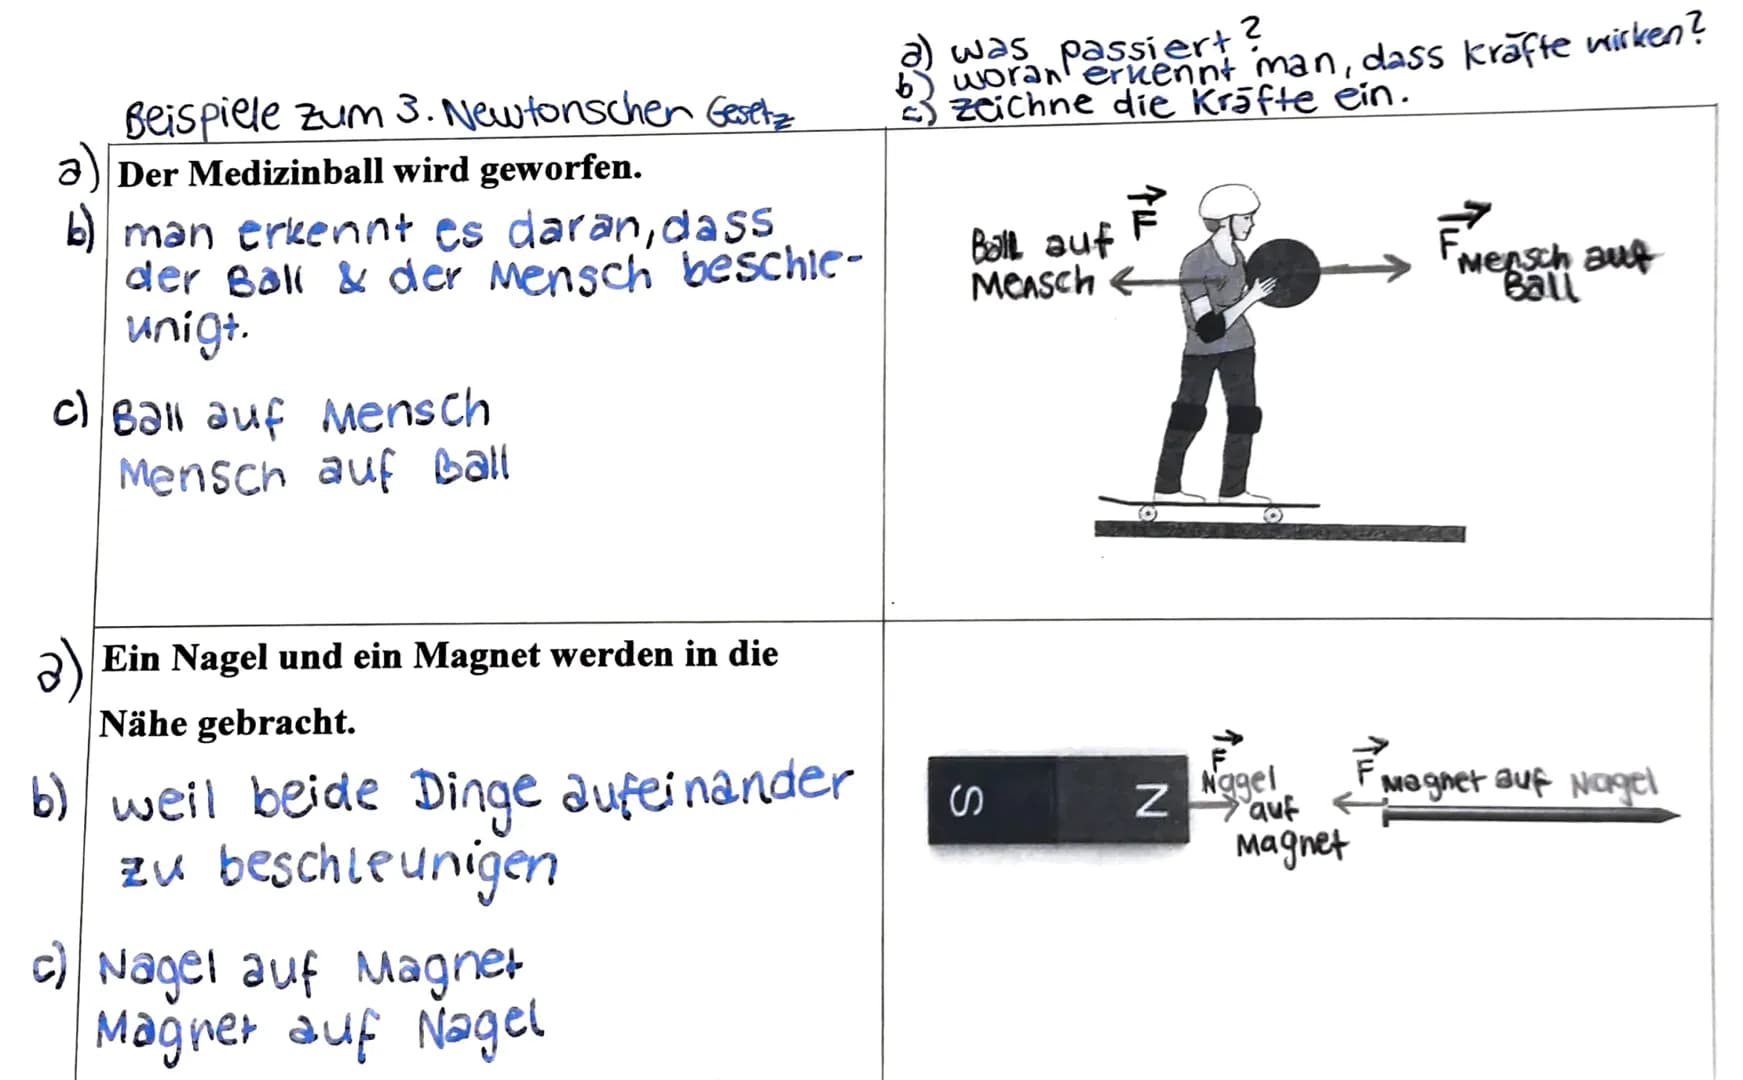 a) was passiert?
b) woran erkennt man, dass Kräfte wirken?
c) zeichne die Kräfte ein.
Beispiele zum 3. Newtonschen Gesetz
a) Der Medizinball wird geworfen.
b) man erkennt es daran, dass
der Ball & der Mensch beschle-
unigt.
c) Ball auf Mensch
Mensch auf Ball
F
Ball auf
Mensch
F Mensch auf
Ball
a) Ein Nagel und ein Magnet werden in die
Nähe gebracht.
b) weil beide Dinge aufeinander
zu beschleunigen
c) Nagel auf Magnet
Magnet auf Nagel
S N
F
Nagel
auf
Magnet
F Magnet auf Nagel